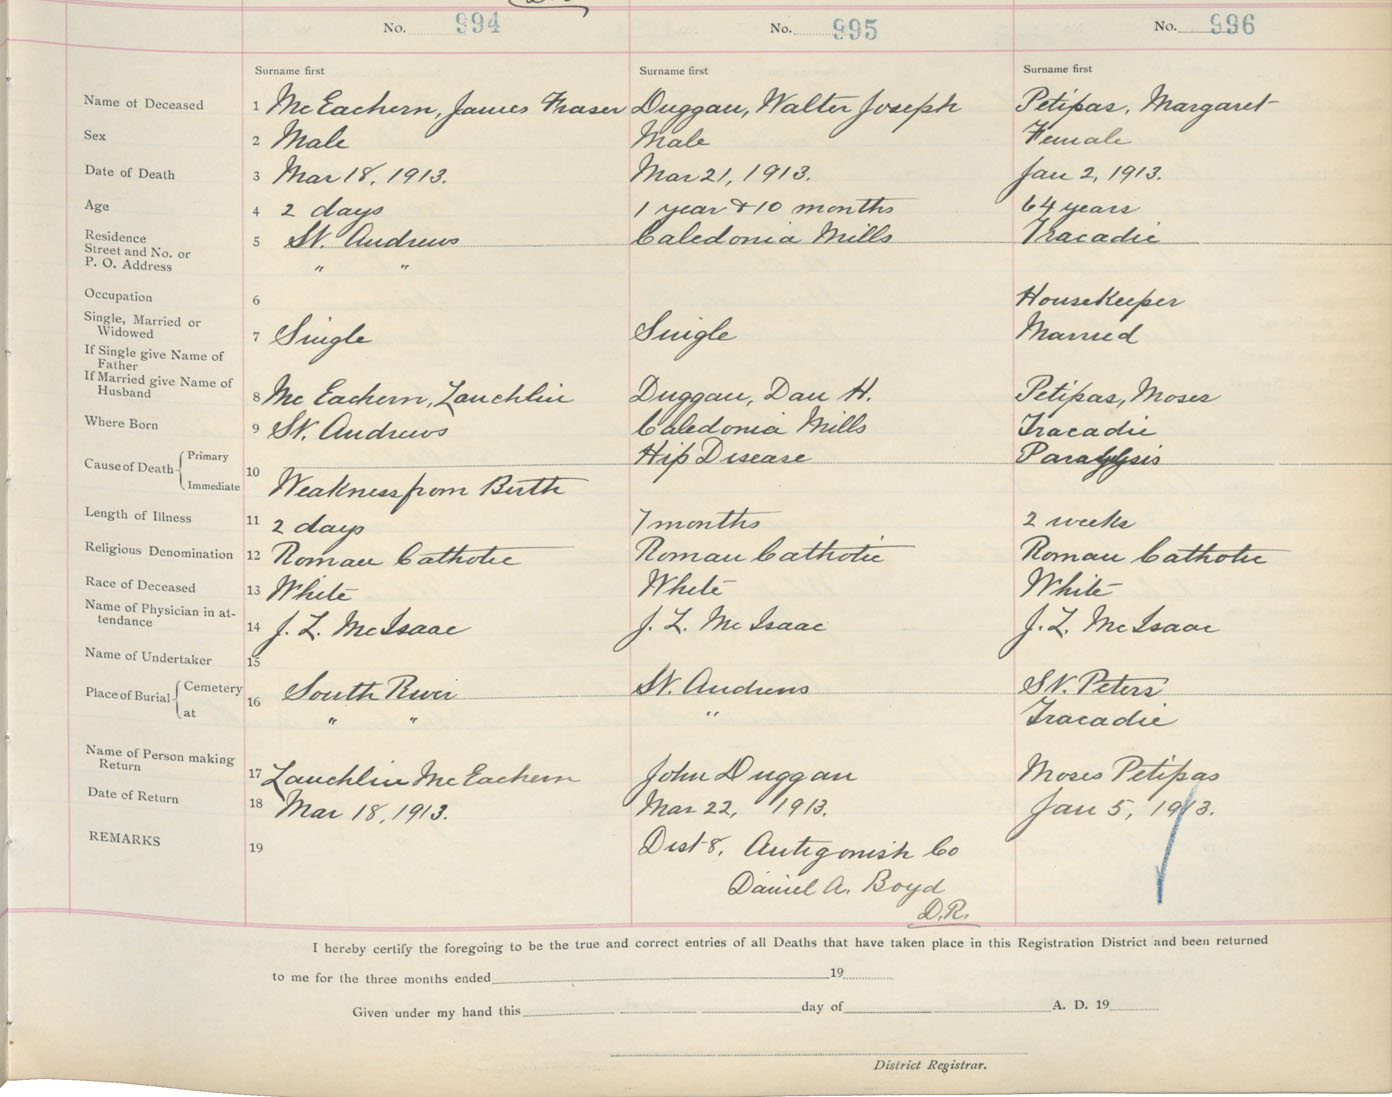 No. 994 No. 995 No. 996
Surname first Surname first Surname first
Name of Deceased 1 McEachern, James Fraser Duggan, Walter Joseph Petipas, Margaret
Sex 2 Male Male Female
Date of Death 3 Mar 18, 1913. Mar 21, 1913. Jan 2, 1913.
Age 4 2 days 1 year & 10 months 64 years
Residence
Street and No. or 5 St. Andrews Caledonia Mills Tracadie
P. O. Address " "
Occupation 6 Housekeeper
Single, Married or
Widowed 7 Single Single Married
If Single give Name of
Father
If Married give Name of
Husband 8 McEachern, Lauchlin Duggan, Dan H. Petipas, Moses
Where Born 9 St. Andrews Caledonia Mills Tracadie
Cause of Death Primary 10 Hip Disease Paralysis
Immediate Weakness from Birth
Length of Illness 11 2 days 7 months 2 weeks
Religious Denomination 12 Roman Catholic Roman Catholic Roman Catholic
Race of Deceased 13 White White White
Name of Physician in at-
tendance 14 J. L. McIsaac J. L. McIsaac J. L. McIsaac
Name of Undertaker 15
Place of Burial Cemetery 16 South River St. Andrews St. Peters
at " " " Tracadie
Name of Person making
Return 17 Lauchlin McEachern John Duggan Moses Petipas
Date of Return 18 Mar 18, 1913. Mar 22, 1913. Jan 5, 1913.
REMARKS 19 Dist 8, Antigonish Co
Daniel A. Boyd
D.R.
I hereby certify the foregoing to be the true and correct entries of all Deaths that have taken place in this Registration District and been returned
to me for the three months ended 19
Given under my hand this day of A. D. 19
District Registrar.